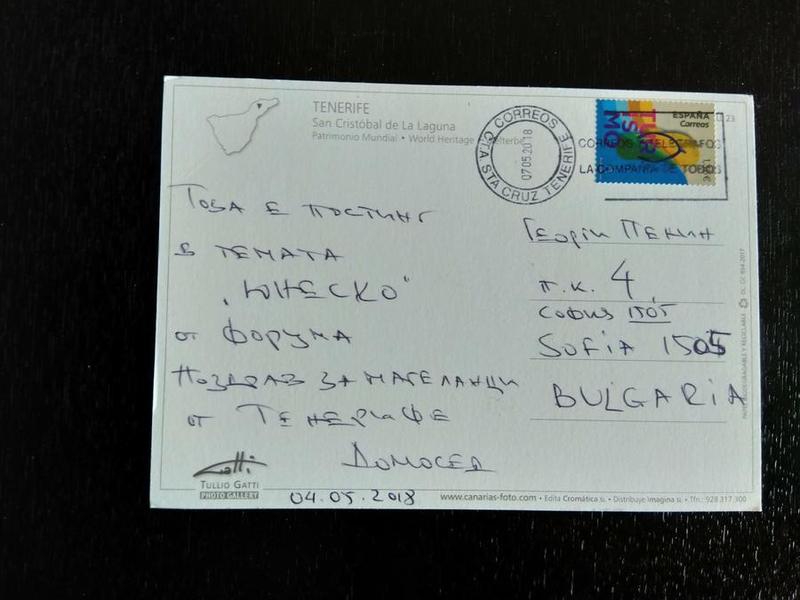 TENERIFE
San Cristóbal de La Laguna
Patrimonio Mundial • World Heritage
CORREOS
CTA STA CRUZ TENERIFE
07 05 20 18
TURISMO
ESPAÑA
Correos
CORREOS Y TELEGRAFOS
LA COMPAÑIA DE TODOS
Това е постинг
в темата
"Юнеско"
от форума
Поздрав за магеланци
от Тенерифе
Домосед
04.05.2018
Георги Пенин
п.к. 4
София 1505
SOFiA 1505
BULGARiA
TULLIO GATTI
PHOTO GALLERY
www.canarias-foto.com • Edita Cromática sl. • Distribuye Imagina sl. • Tfn.: 928 317 300